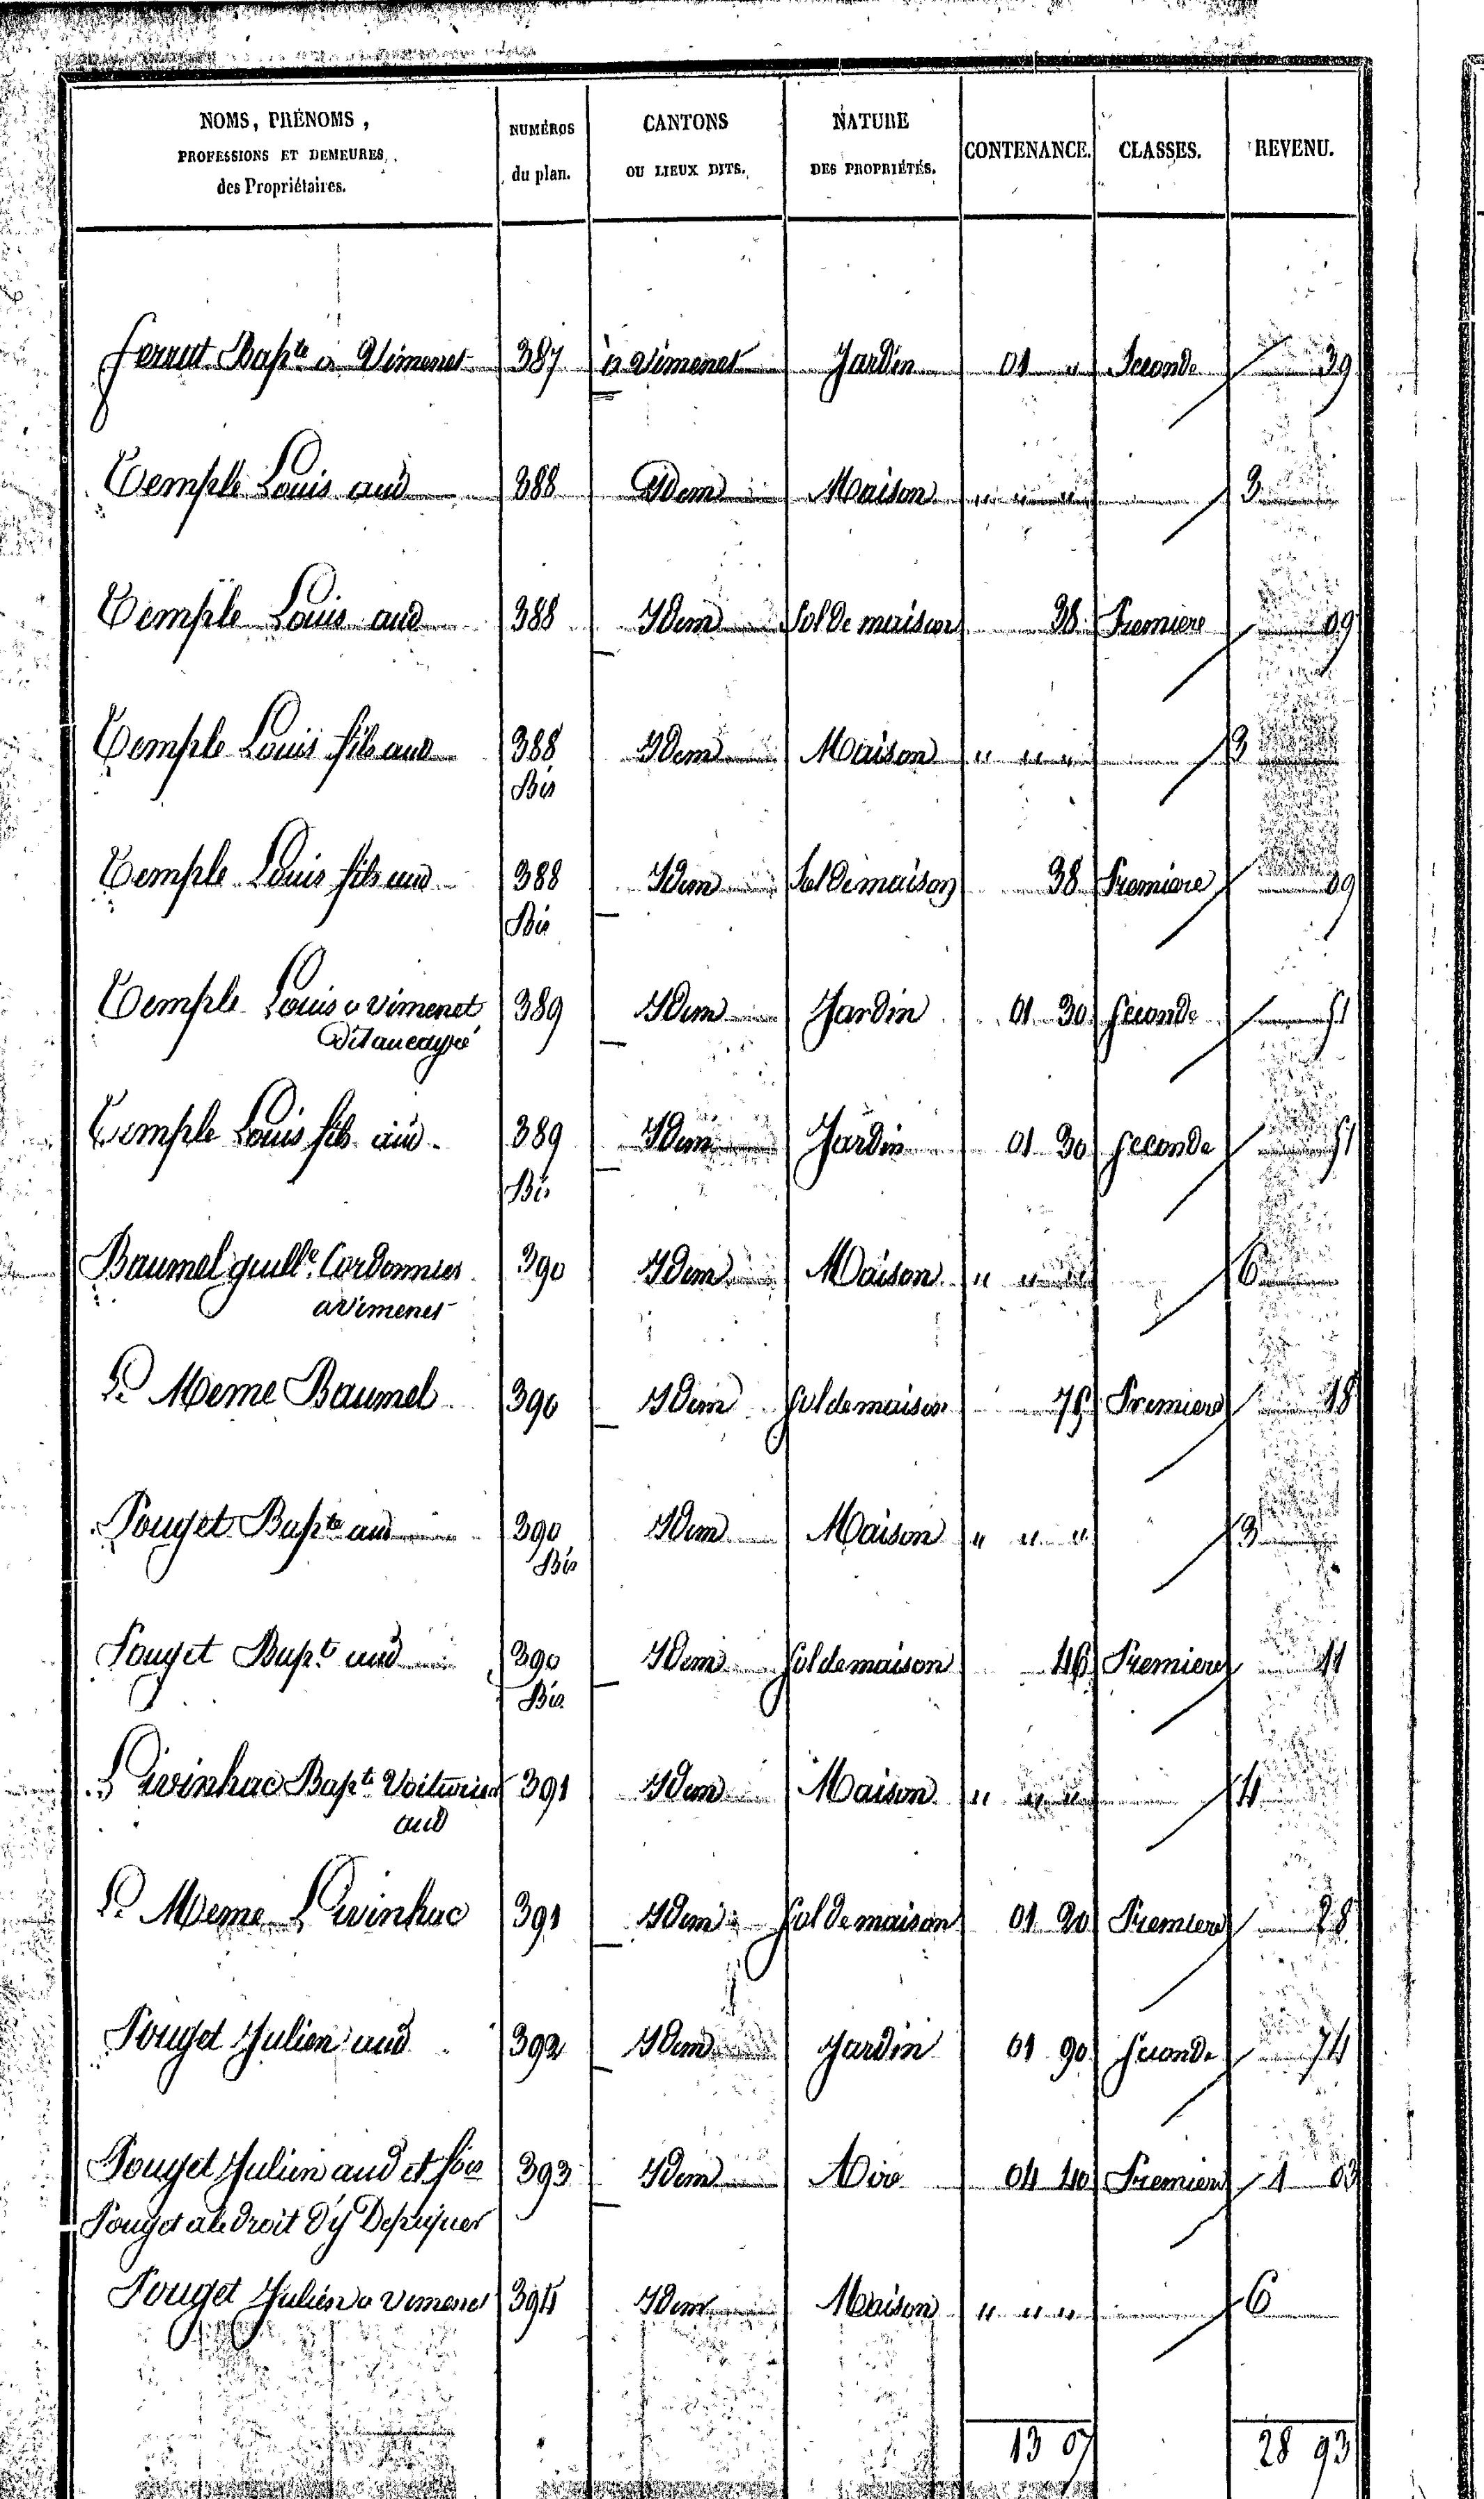 NOMS, PRÉNOMS, PROFESSIONS ET DEMEURES, des Propriétaires. | NUMÉROS du plan. | CANTONS OU LIEUX DITS. | NATURE DES PROPRIÉTÉS. | CONTENANCE. | CLASSES. | REVENU.
ferrat Bapte a Vimenet 387 à Vimenet Jardin 01 " Seconde 39
Temple Louis aud 388 Idem Maison " " " 3
Temple Louis aud 388 Idem Sol de maison 38 Premiere 09
Temple Louis fils aud 388 Idem Maison " " " 3
Bis
Temple Louis fils aud 388 Idem Sol de maison 38 Premiere 09
Bis
Temple Louis a Vimenet 389 Idem Jardin 01 30 Seconde 51
Dit
Temple Louis fils aud 389 Idem Jardin 01 30 Seconde 51
Bis
Baumel guille. Cordonnier 390 Idem Maison " " " 6
a Vimenet
Le Meme Baumel 390 Idem Sol de maison 75 Premiere 18
Pouget Bapte aud 390 Idem Maison " " " 3
Bis
Pouget Bapt. aud 390 Idem Sol de maison 46 Premiere 11
Bis
Livinhac Bapt. Voiturier 391 Idem Maison " " " 4
aud
Le Meme Livinhac 391 Idem Sol de maison 01 20 Premiere 28
Pouget Julien aud 392 Idem Jardin 01 90 Seconde 74
Pouget Julien aud et 393 Idem Aire 04 40 Premiere 1 03
Pouget a le droit D'y Depiquer
Pouget Julien a Vimenet 394 Idem Maison " " " 6
13 07 28 93